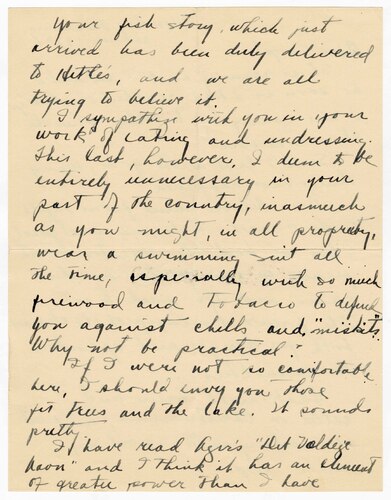 Your fish story, which just
arrived has been duly delivered
to Hettie's, and we are all
trying to believe it.
I sympathize with you in your
work of eating and undressing.
This last, however, I deem to be
entirely unnecessary in your
part of the country, inasmuch
as you might, in all propriety,
wear a swimming suit all
the time, especially with so much
firewood and tobacco to defend
you against chills and "miskits."
Why not be practical?
If I were not so comfortable
here, I should envy you those
fir trees and the lake. It sounds
pretty.
I have read "Det
" and I think it has an element
of greater power than I have